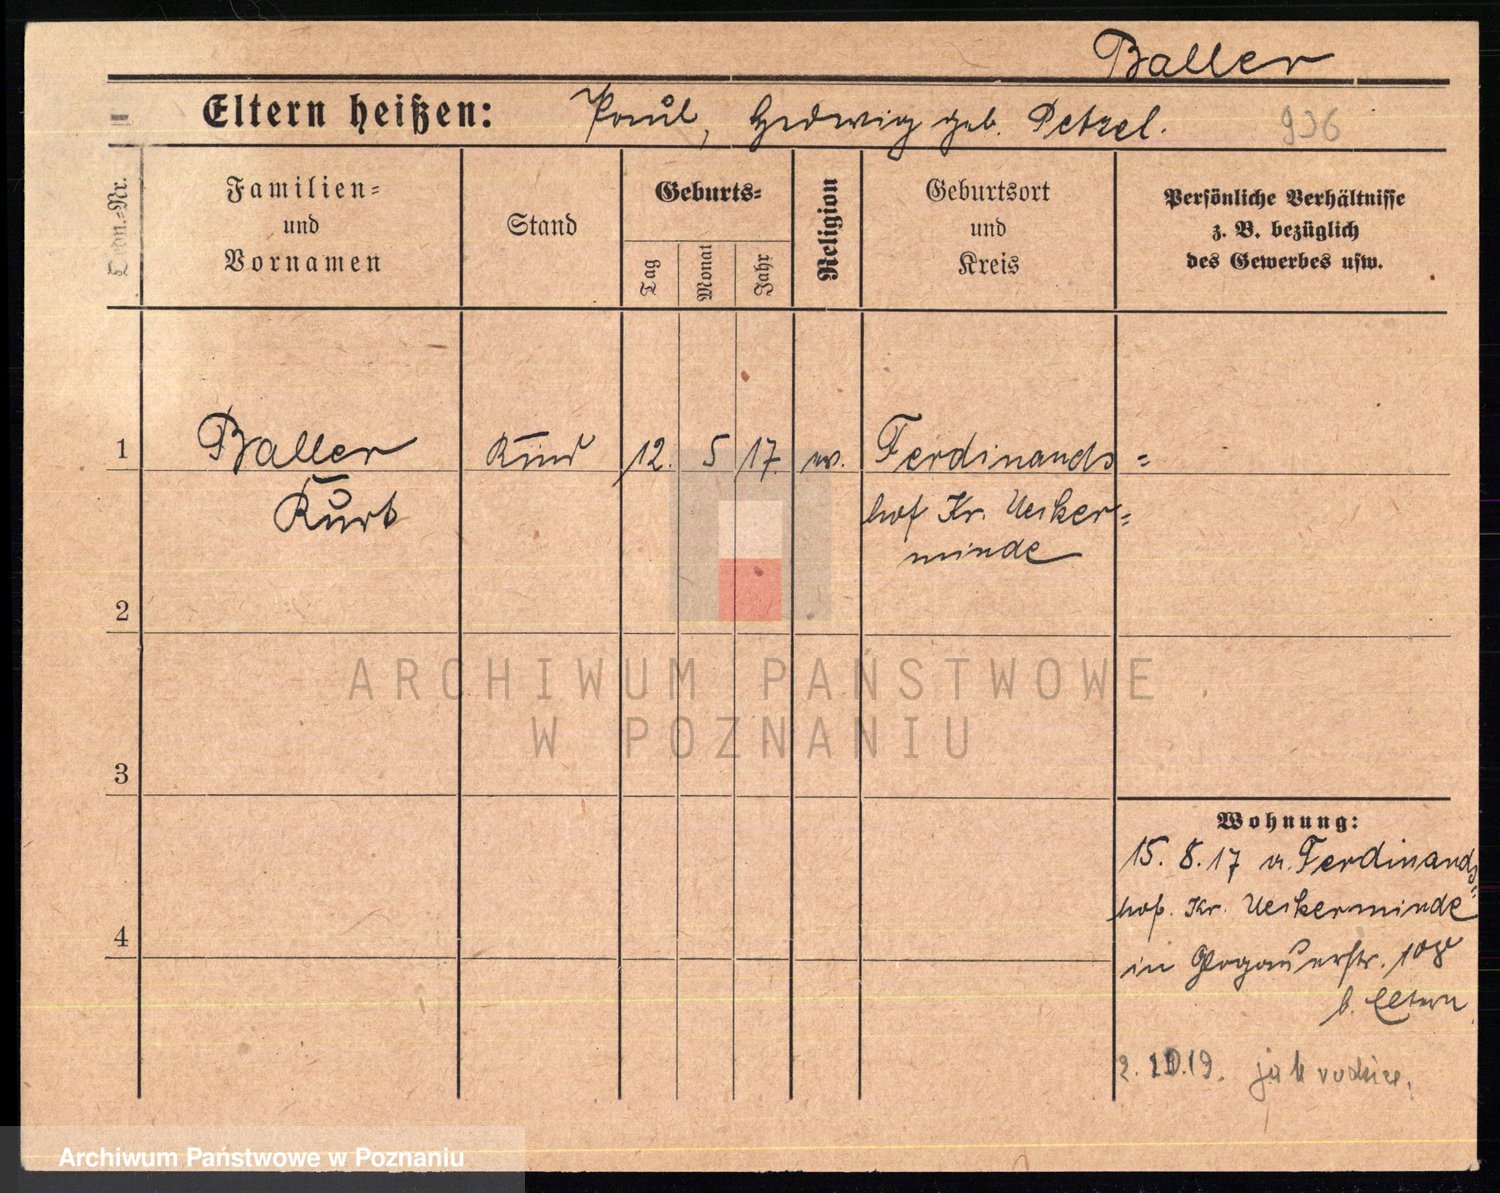 Baller
Eltern heißen: Paul, Hedwig geb. Petzel. 936
Ordn.=Nr.
Familien=
und
Vornamen
Stand
Geburts=
Tag
Monat
Jahr
Religion
Geburtsort
und
Kreis
Persönliche Verhältnisse
z. B. bezüglich
des Gewerbes usw.
1 Baller Kind 12. 5 17. ev. Ferdinands=
Kurt hof Kr. Uecker=
minde
2
ARCHIWUM PAŃSTWOWE
W POZNANIU
3
Wohnung:
15. 8. 17 v. Ferdinands=
hof. Kr. Ueckerminde
4
in Glogauerstr. 108
b. Eltern
2. 10.19. jak rodzice.
Archiwum Państwowe w Poznaniu